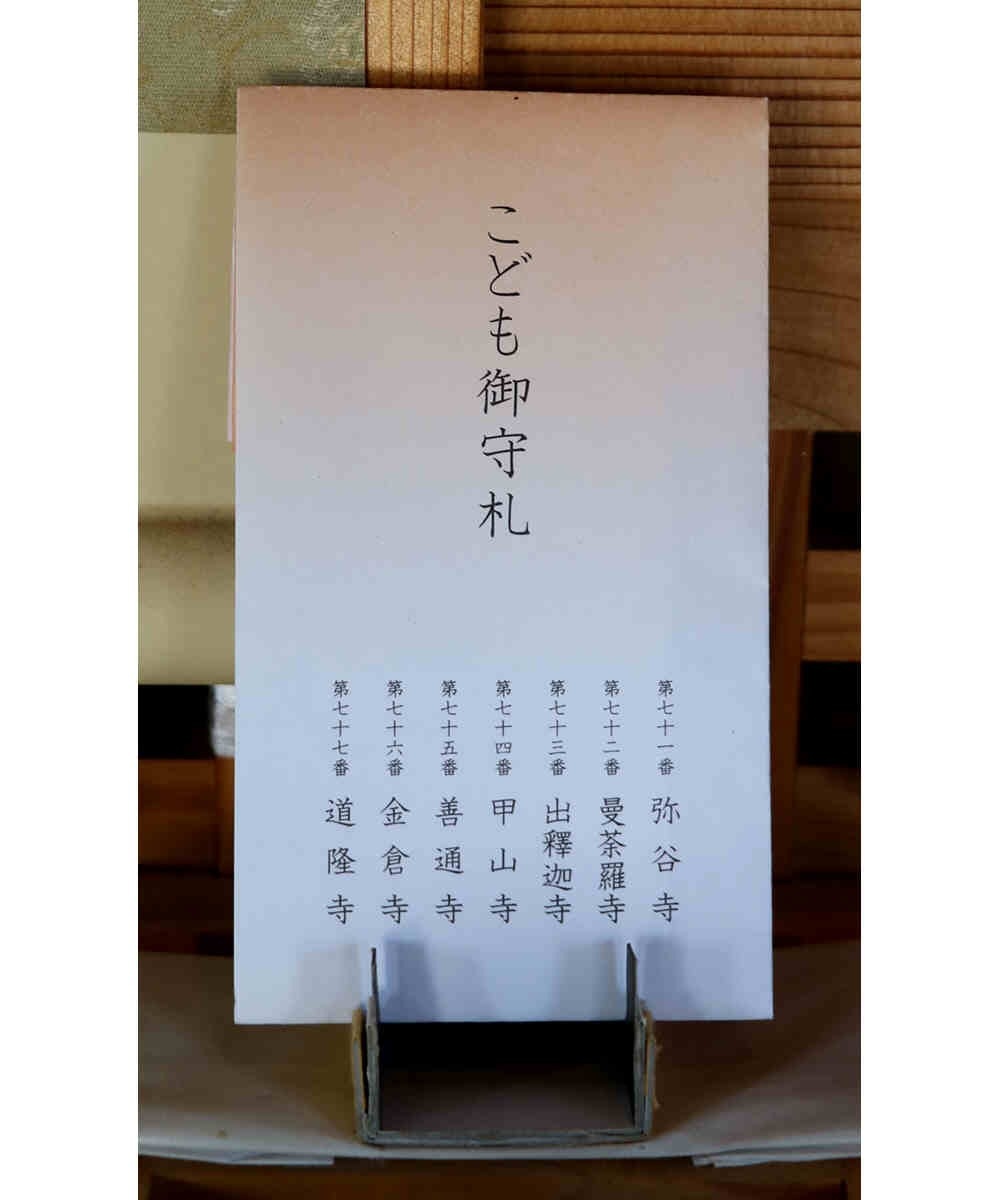 こども御守札
第七十一番 弥谷寺
第七十二番 曼荼羅寺
第七十三番 出釋迦寺
第七十四番 甲山寺
第七十五番 善通寺
第七十六番 金倉寺
第七十七番 道隆寺